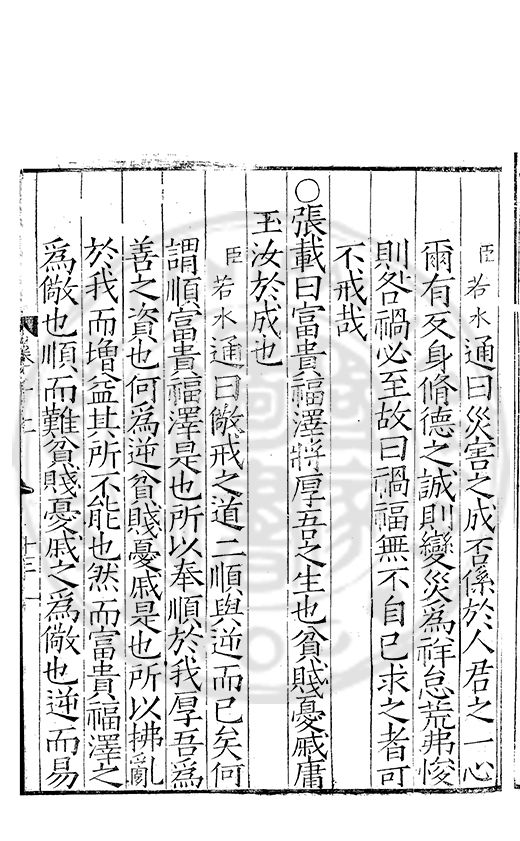 臣若水通曰災害之成否係於人君之一心
爾有反身脩德之誠則變災為祥怠荒弗悛
則咎禍必至故曰禍福無不自己求之者可
不戒哉
○張載曰富貴福澤將厚吾之生也貧賤憂戚庸
玉汝於成也
臣若水通曰儆戒之道二順與逆而已矣何
謂順富貴福澤是也所以奉順於我厚吾為
善之資也何為逆貧賤憂戚是也所以拂亂
於我而增益其所不能也然而富貴福澤之
為儆也順而難貧賤憂戚之為儆也逆而易